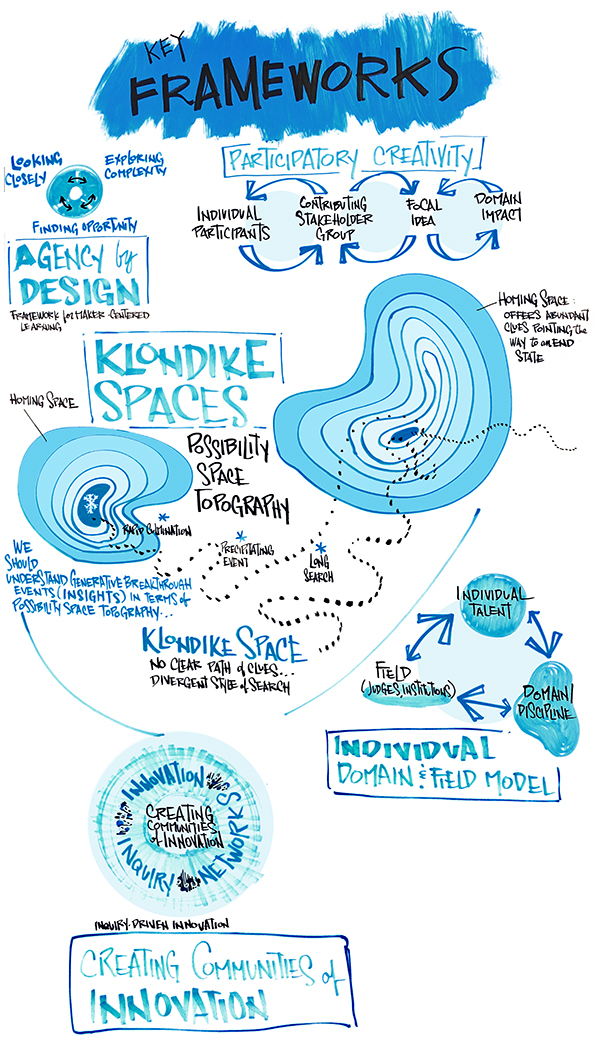 KEY
FRAMEWORKS
LOOKING
CLOSELY
EXPLORING
COMPLEXITY
FINDING OPPORTUNITY
AGENCY by
DESIGN
FRAMEWORK for MAKER-CENTERED
LEARNING
PARTICIPATORY CREATIVITY
INDIVIDUAL
PARTICIPANTS
CONTRIBUTING
STAKEHOLDER
GROUP
FOCAL
IDEA
DOMAIN
IMPACT
HOMING SPACE:
OFFERS ABUNDANT
CLUES POINTING the
WAY to an END
STATE
KLONDIKE
SPACES
HOMING SPACE
POSSIBILITY
SPACE
TOPOGRAPHY
RAPID CULMINATION
PRECIPITATING
EVENT
LONG
SEARCH
WE
SHOULD
UNDERSTAND GENERATIVE BREAKTHROUGH
EVENTS (INSIGHTS) IN TERMS of
POSSIBILITY SPACE TOPOGRAPHY...
KLONDIKE SPACE
NO CLEAR PATH of CLUES...
DIVERGENT STYLE of SEARCH
INDIVIDUAL
TALENT
FIELD
(JUDGES, INSTITUTIONS)
DOMAIN/
DISCIPLINE
INDIVIDUAL
DOMAIN & FIELD MODEL
INNOVATION
NETWORKS
INQUIRY
CREATING
COMMUNITIES
of INNOVATION
INQUIRY-DRIVEN INNOVATION
CREATING COMMUNITIES of
INNOVATION